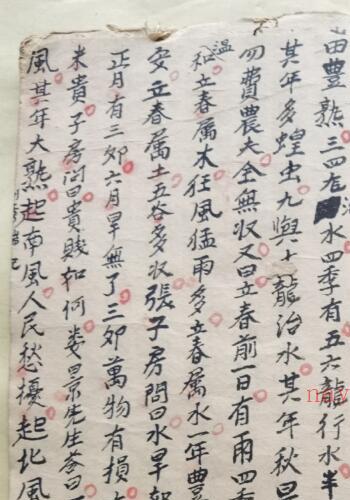 豐熟三四在水四季有五六龍行水半
其年多蝗虫九與十龍治水其年秋
四費農夫全無収又曰立春前一日有雨四季
温和立春属木狂風猛雨多立春属水一年豊
安立春属土五谷多収張子房問曰水旱如
正月有三夘六月旱無了三夘萬物有損
米貴子房問曰貴賤如何娄景先生荅曰
風其年大熟起南風人民愁擾起北風